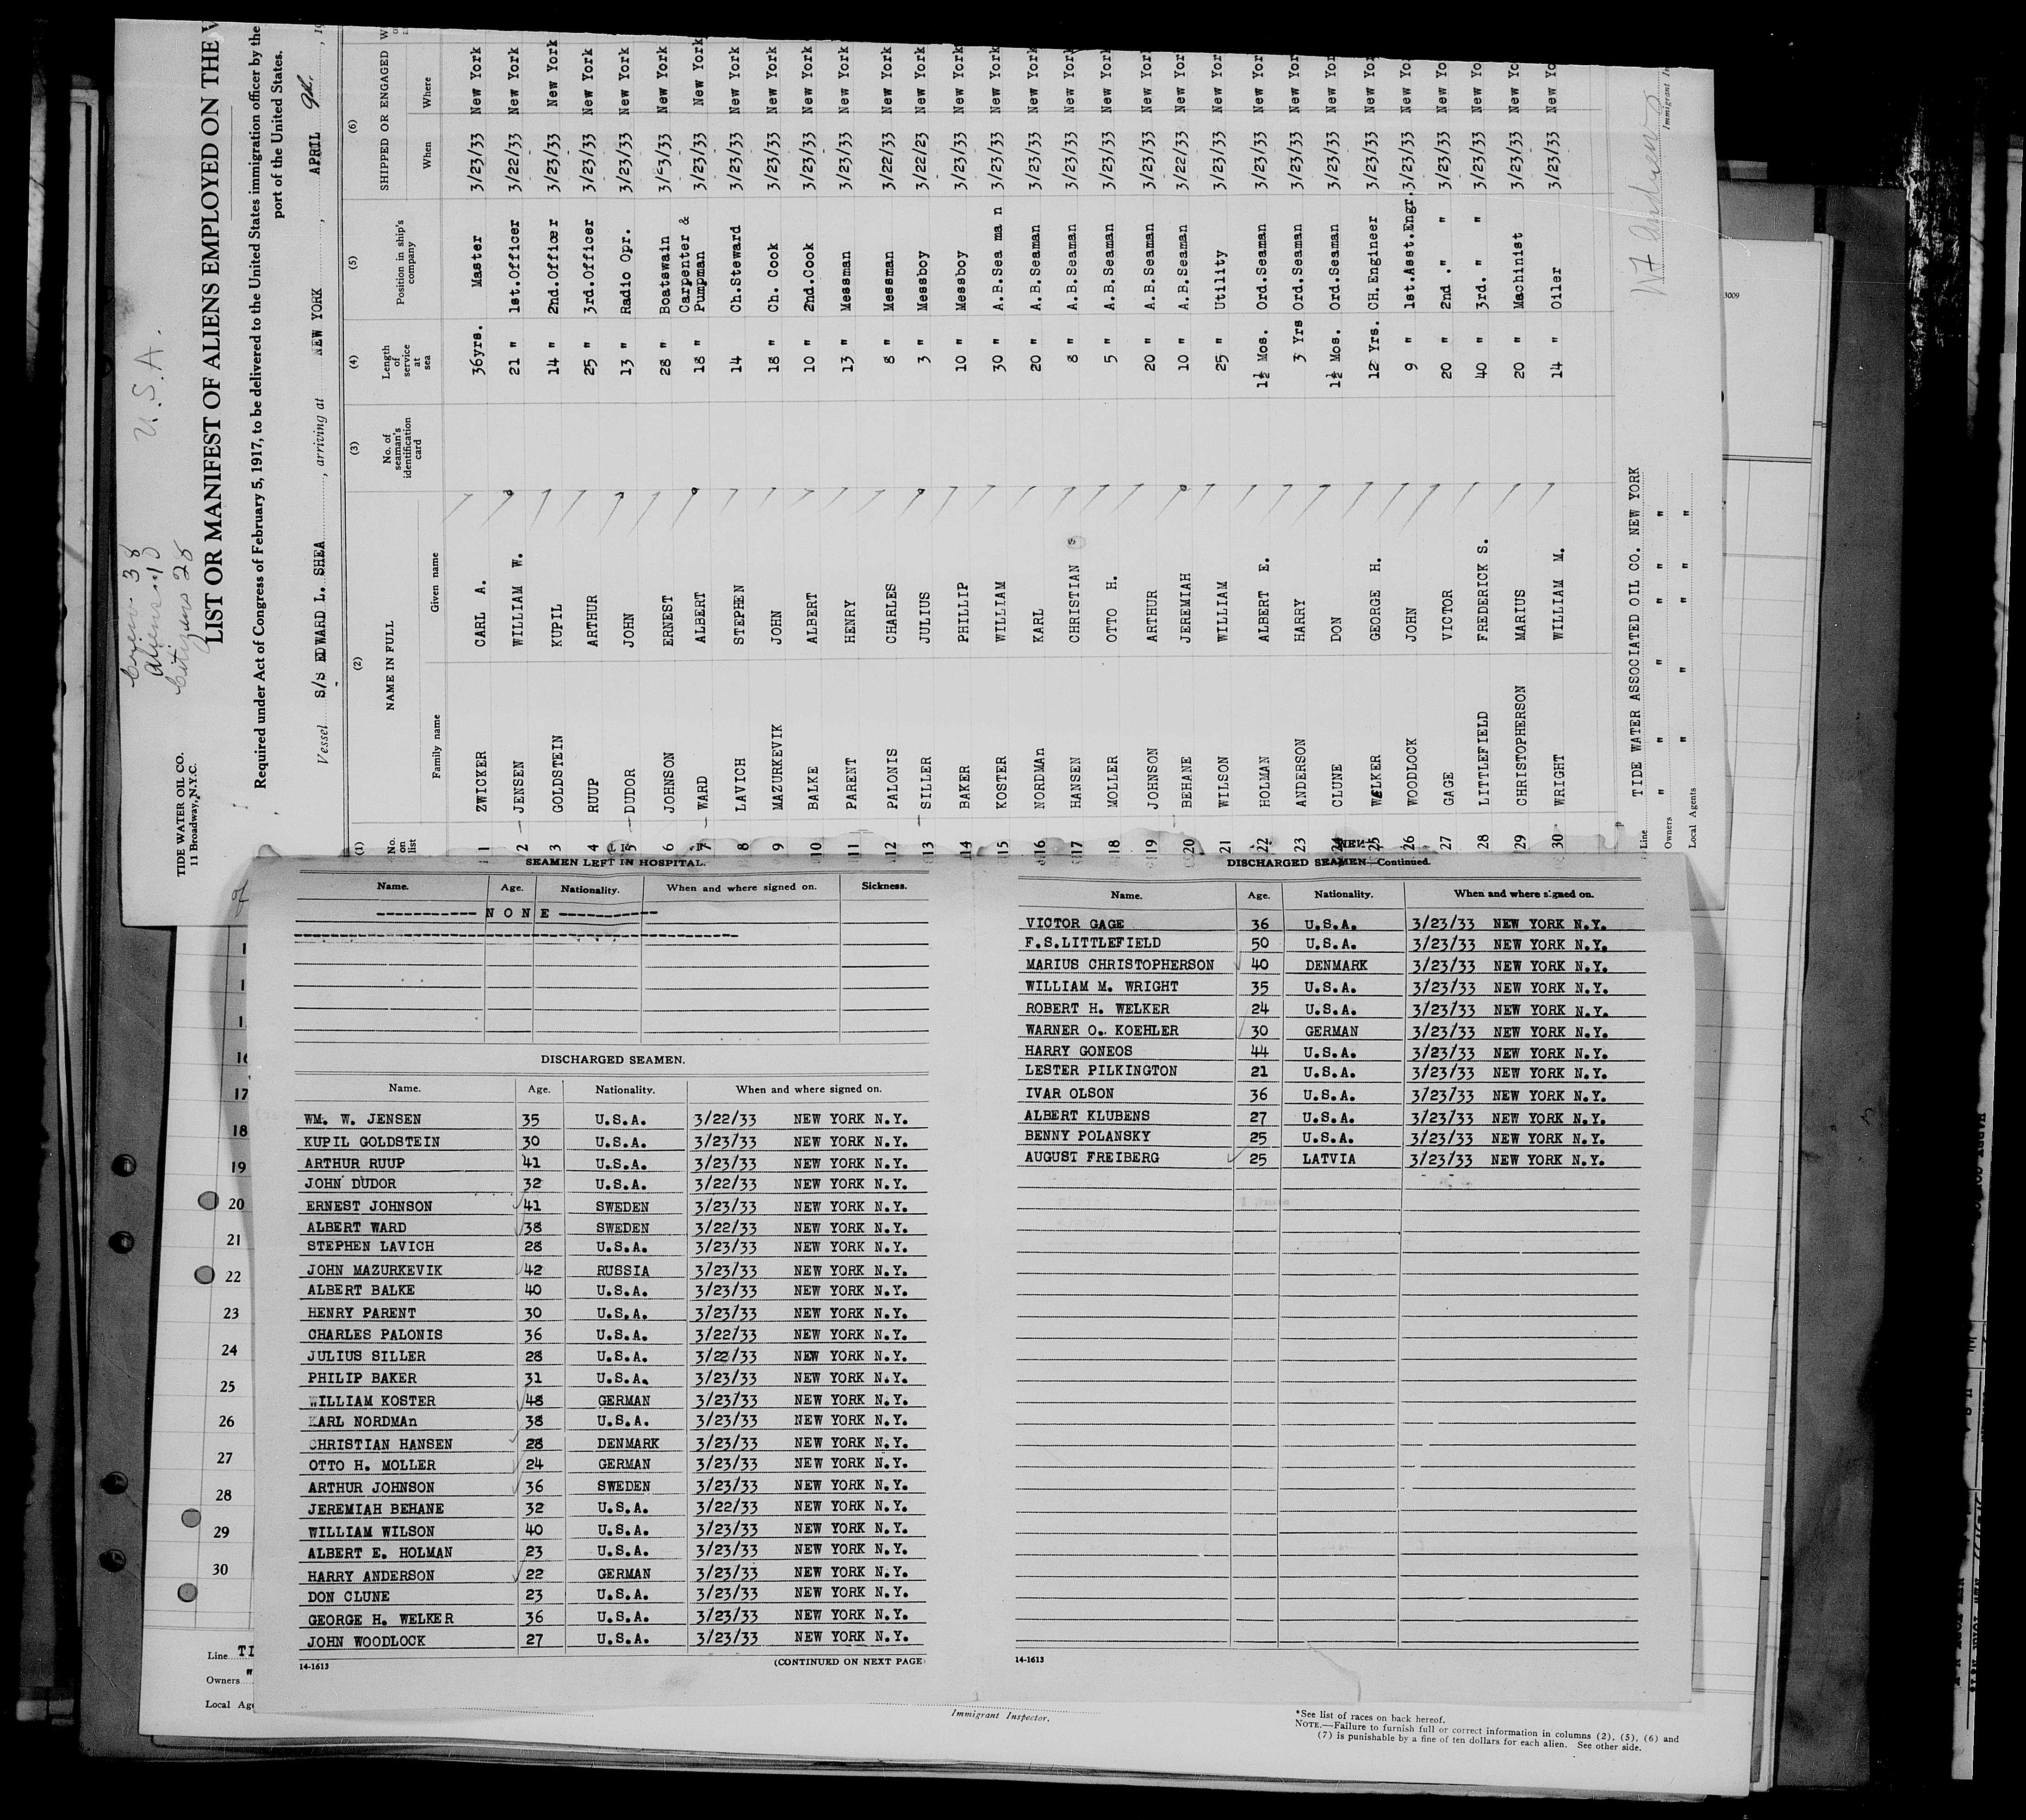 U.S.A.
Crew 38
Aliens 10
Citizens 28
TIDE WATER OIL CO.
11 Broadway, N.Y.C.
LIST OR MANIFEST OF ALIENS EMPLOYED ON THE
Required under Act of Congress of February 5, 1917, to be delivered to the United States immigration officer by the
port of the United States.
Vessel S/s EDWARD L. SHEA, arriving at NEW YORK, APRIL 9th., 19
(1) (2) (3) (4) (5) (6)
No. on list NAME IN FULL No. of seaman's identification card Length of service at sea Position in ship's company SHIPPED OR ENGAGED
Family name Given name When Where
1 ZWICKER CARL A. 36yrs. Master 3/23/33 New York
2 JENSEN WILLIAM W. 21 " 1st.Officer 3/22/33 New York
3 GOLDSTEIN KUPIL 14 " 2nd.Officer 3/23/33 New York
4 RUUP ARTHUR 25 " 3rd.Officer 3/23/33 New York
5 DUDOR JOHN 13 " Radio Opr. 3/23/33 New York
6 JOHNSON ERNEST 28 " Boatswain 3/23/33 New York
7 WARD ALBERT 18 " Carpenter & Pumpman 3/23/33 New York
8 LAVICH STEPHEN 14 Ch.Steward 3/23/33 New York
9 MAZURKEVIK JOHN 18 " Ch. Cook 3/23/33 New York
10 BALKE ALBERT 10 " 2nd.Cook 3/23/33 New York
11 PARENT HENRY 13 " Messman 3/23/33 New York
12 PALONIS CHARLES 8 " Messman 3/22/33 New York
13 SILLER JULIUS 3 " Messboy 3/22/23 New York
14 BAKER PHILLIP 10 " Messboy 3/23/33 New York
15 KOSTER WILLIAM 30 " A.B.Sea ma n 3/23/33 New York
16 NORDMAn KARL 20 " A.B.Seaman 3/23/33 New York
17 HANSEN CHRISTIAN 8 " A.B.Seaman 3/23/33 New York
18 MOLLER OTTO H. 5 " A.B.Seaman 3/23/33 New York
19 JOHNSON ARTHUR 20 " A.B.Seaman 3/23/33 New York
20 BEHANE JEREMIAH 10 " A.B.Seaman 3/22/33 New York
21 WILSON WILLIAM 25 " Utility 3/23/33 New York
22 HOLMAN ALBERT E. 1½ Mos. Ord.Seaman 3/23/33 New Yor
23 ANDERSON HARRY 3 Yrs Ord.Seaman 3/23/33 New Yor
24 CLUNE DON 1½ Mos. Ord.Seaman 3/23/33 New Yor
25 WELKER GEORGE H. 12 Yrs. CH.Engineer 3/23/33 New Yor
26 WOODLOCK JOHN 9 " 1st.Asst.Engr. 3/23/33 New Yo
27 GAGE VICTOR 20 " 2nd ." " 3/23/33 New Yo
28 LITTLEFIELD FREDERICK S. 40 " 3rd. " " 3/23/33 New Yo
29 CHRISTOPHERSON MARIUS 20 " Machinist 3/23/33 New Yo
30 WRIGHT WILLIAM M. 14 " Oiler 3/23/33 New Yo
Line TIDE WATER ASSOCIATED OIL CO. NEW YORK
Owners " " " " " "
Local Agents " " " "
Immigrant In
3009
SEAMEN LEFT IN HOSPITAL.
Name. Age. Nationality. When and where signed on. Sickness.
------------ N O N E ------------
DISCHARGED SEAMEN.
Name. Age. Nationality. When and where signed on.
WM. W. JENSEN 35 U.S.A. 3/22/33 NEW YORK N.Y.
KUPIL GOLDSTEIN 30 U.S.A. 3/23/33 NEW YORK N.Y.
ARTHUR RUUP 41 U.S.A. 3/23/33 NEW YORK N.Y.
JOHN DUDOR 32 U.S.A. 3/22/33 NEW YORK N.Y.
ERNEST JOHNSON 41 SWEDEN 3/23/33 NEW YORK N.Y.
ALBERT WARD 38 SWEDEN 3/22/33 NEW YORK N.Y.
STEPHEN LAVICH 28 U.S.A. 3/23/33 NEW YORK N.Y.
JOHN MAZURKEVIK 42 RUSSIA 3/23/33 NEW YORK N.Y.
ALBERT BALKE 40 U.S.A. 3/23/33 NEW YORK N.Y.
HENRY PARENT 30 U.S.A. 3/23/33 NEW YORK N.Y.
CHARLES PALONIS 36 U.S.A. 3/22/33 NEW YORK N.Y.
JULIUS SILLER 28 U.S.A. 3/22/33 NEW YORK N.Y.
PHILIP BAKER 31 U.S.A. 3/23/33 NEW YORK N.Y.
WILLIAM KOSTER 48 GERMAN 3/23/33 NEW YORK N.Y.
KARL NORDMAn 38 U.S.A. 3/23/33 NEW YORK N.Y.
CHRISTIAN HANSEN 28 DENMARK 3/23/33 NEW YORK N.Y.
OTTO H. MOLLER 24 GERMAN 3/23/33 NEW YORK N.Y.
ARTHUR JOHNSON 36 SWEDEN 3/23/33 NEW YORK N.Y.
JEREMIAH BEHANE 32 U.S.A. 3/22/33 NEW YORK N.Y.
WILLIAM WILSON 40 U.S.A. 3/23/33 NEW YORK N.Y.
ALBERT E. HOLMAN 23 U.S.A. 3/23/33 NEW YORK N.Y.
HARRY ANDERSON 22 GERMAN 3/23/33 NEW YORK N.Y.
DON CLUNE 23 U.S.A. 3/23/33 NEW YORK N.Y.
GEORGE H. WELKER 36 U.S.A. 3/23/33 NEW YORK N.Y.
JOHN WOODLOCK 27 U.S.A. 3/23/33 NEW YORK N.Y.
14-1613 (CONTINUED ON NEXT PAGE
DISCHARGED SEAMEN—Continued.
Name. Age. Nationality. When and where signed on.
VICTOR GAGE 36 U.S.A. 3/23/33 NEW YORK N.Y.
F.S.LITTLEFIELD 50 U.S.A. 3/23/33 NEW YORK N.Y.
MARIUS CHRISTOPHERSON 40 DENMARK 3/23/33 NEW YORK N.Y.
WILLIAM M. WRIGHT 35 U.S.A. 3/23/33 NEW YORK N.Y.
ROBERT H. WELKER 24 U.S.A. 3/23/33 NEW YORK N.Y.
WARNER O. KOEHLER 30 GERMAN 3/23/33 NEW YORK N.Y.
HARRY GONEOS 44 U.S.A. 3/23/33 NEW YORK N.Y.
LESTER PILKINGTON 21 U.S.A. 3/23/33 NEW YORK N.Y.
IVAR OLSON 36 U.S.A. 3/23/33 NEW YORK N.Y.
ALBERT KLUBENS 27 U.S.A. 3/23/33 NEW YORK N.Y.
BENNY POLANSKY 25 U.S.A. 3/23/33 NEW YORK N.Y.
AUGUST FREIBERG 25 LATVIA 3/23/33 NEW YORK N.Y.
14-1613
16
17
18
19
20
21
22
23
24
25
26
27
28
29
30
Line TI
Owners "
Local Age
Immigrant Inspector.
*See list of races on back hereof.
NOTE.—Failure to furnish full or correct information in columns (2), (5), (6) and
(7) is punishable by a fine of ten dollars for each alien. See other side.